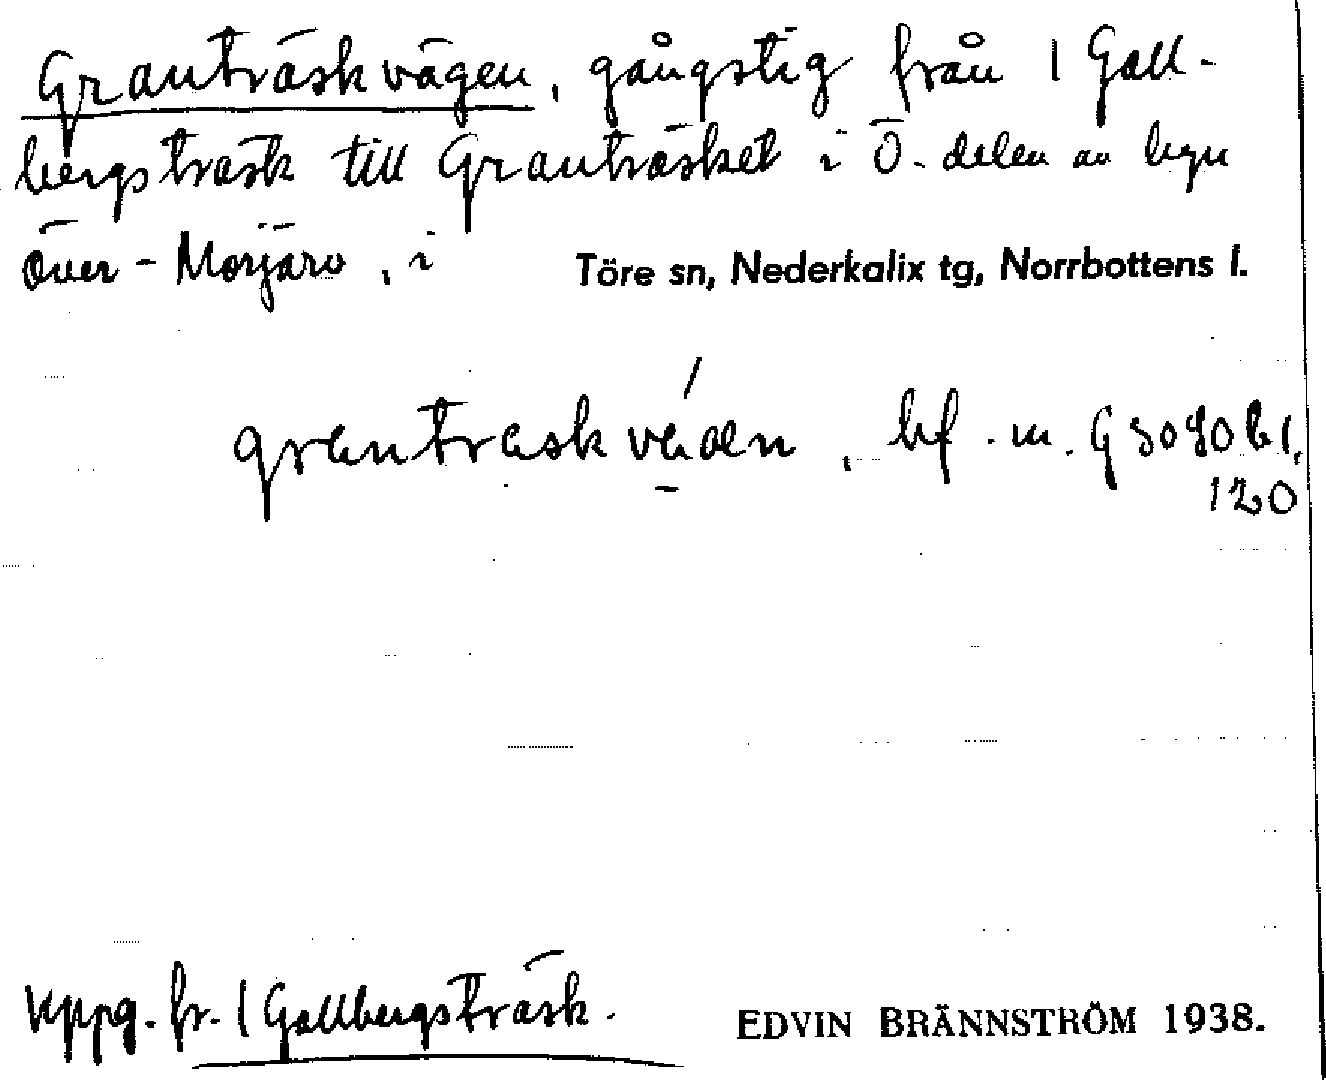 Granträskvägen, gångstig från 1 Gall-
bergsträsk till Granträsket i Ö. delen av byn
Över-Morjärv, i Töre sn, Nederkalix tg, Norrbottens l.
grantraskvéden, bf. m. G 3080 bl.
120
Uppg. fr. 1 Gallbergsträsk.
EDVIN BRÄNNSTRÖM 1938.